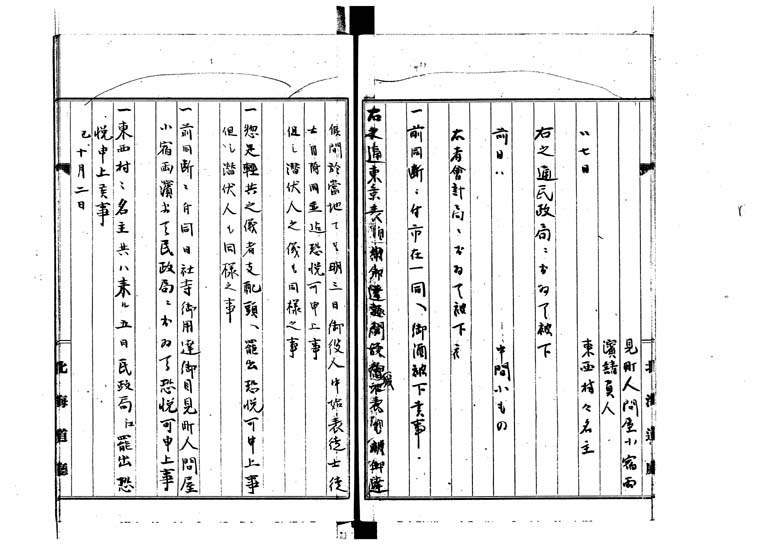 見町人問屋小宿両
濱請負人
東西村々名主
〃七日
右之通民政局ニおゐて被下
前日〃
中間小もの
右者會計局ニおゐて被下
一前同断ニ付市在一同へ御酒被下
右之通東京表
候間於當地ても明三日御役人中始表徒士徒
士目附同並迄恐悦可申上事
但し潜伏人之儀も同様之事
一惣足軽共之儀者支配頭へ罷出恐悦可申上事
但し潜伏人も同様之事
一前同断ニ付同日社寺御用達御目見町人問屋
小宿両濱おゐて民政局ニおゐて恐悦可申上事
一東西村々名主共ハ来ル五日民政局江罷出恐
悦申上候事
巳十月二日
北海道廳
北海道廳